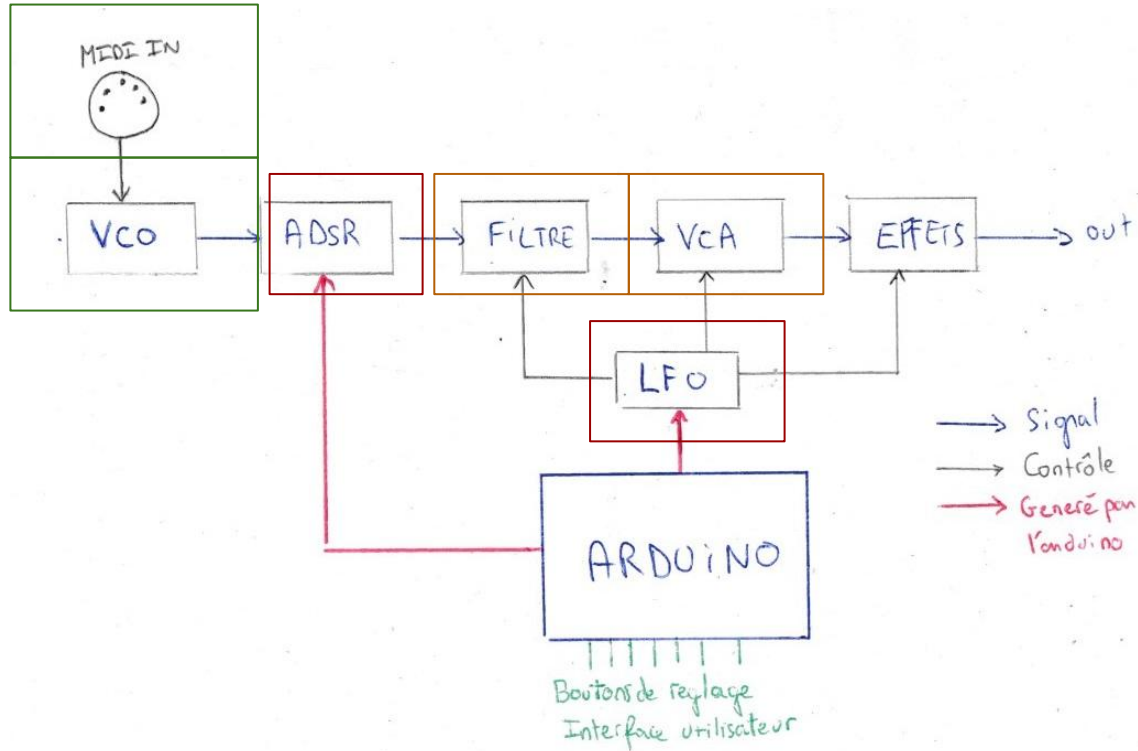 MIDI IN
VCO
ADSR
FiLTRE
VCA
EFFETS
out
LFO
Signal
Contrôle
Generé par
l'arduino
ARDUiNO
Boutons de reglage
Interface utilisateur